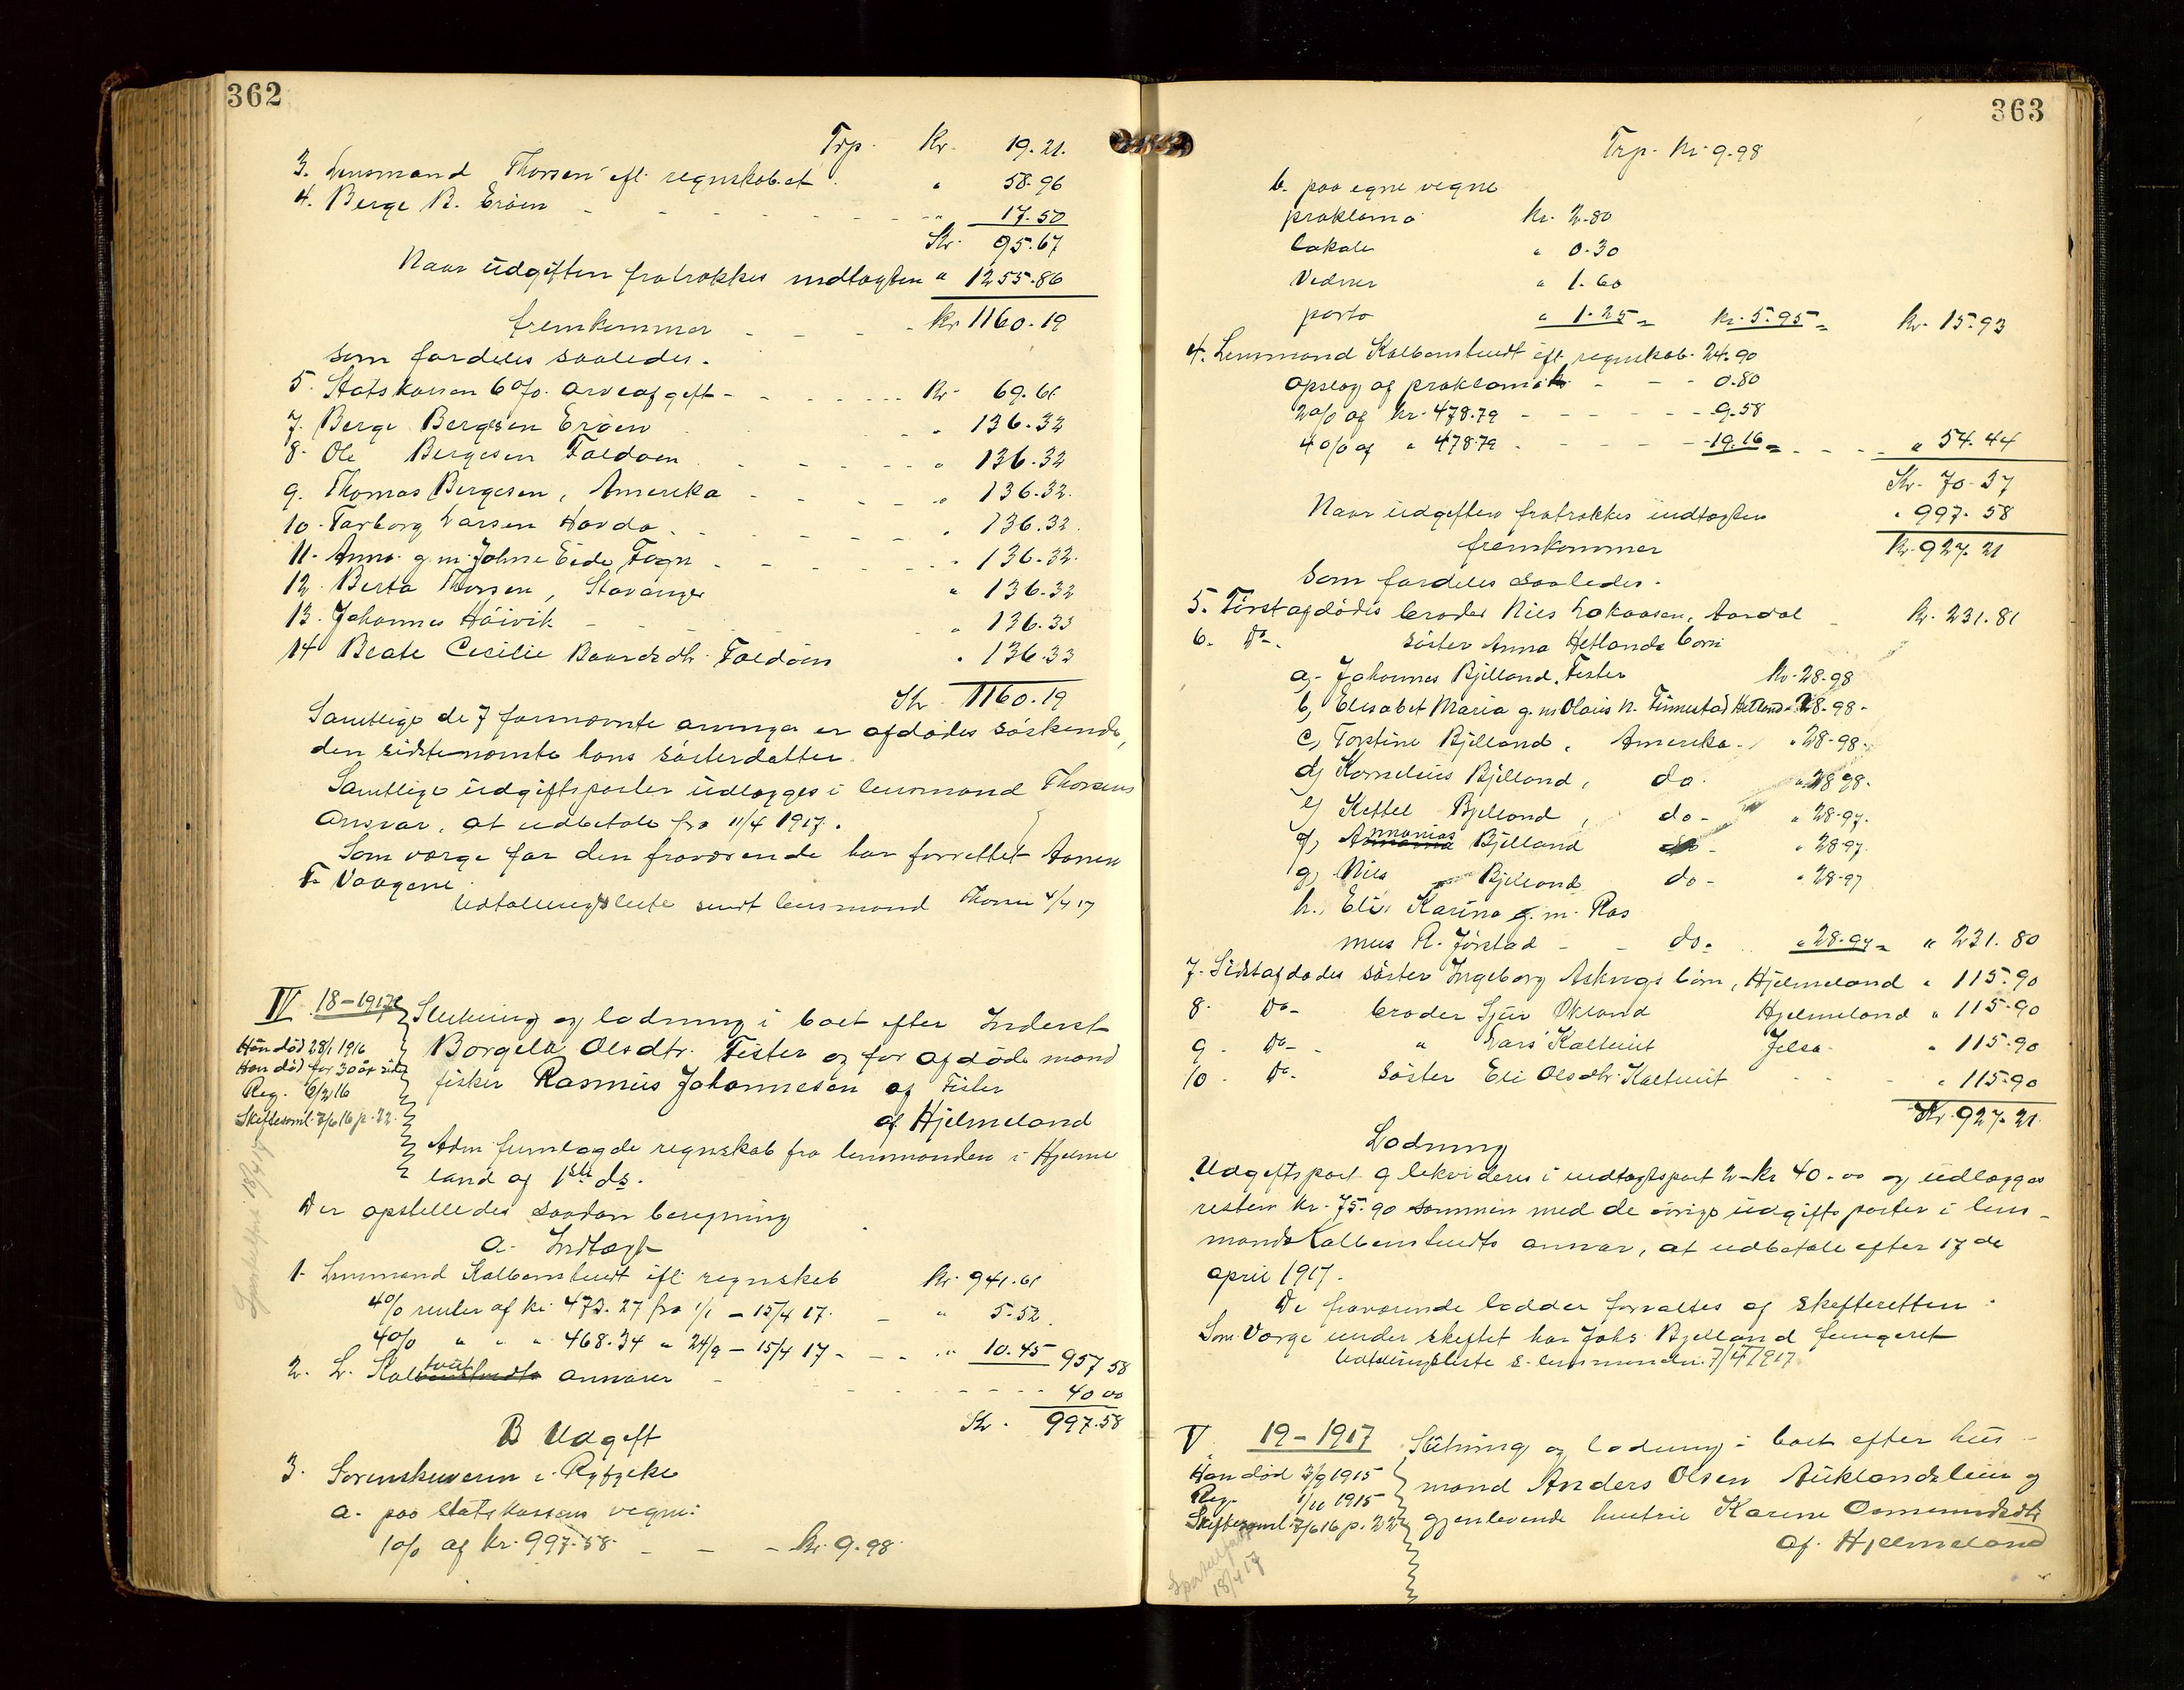 362
Trp. Kr. 19.21.
3. Lensmand Thorsen efl. regnskabet " 58.96
4. Berge B. Eröen - - - - " 17.50
Kr. 95.67
Naar udgiften fratrækkes indtægten " 1255.86
fremkommer - - - Kr 1160.19
som fordeles saaledes.
5. Statskassen 6% arveafgeft - - - - Kr. 69.61
7. Berge Bergesen Eröen " 136.32
8. Ole Bergesen Foldöen - - - - " 136.32
9. Thomas Bergesen, Amerika - - - " 136.32.
10. Torborg Larsen Havda - - - - " 136.32
11. Anna g. m. Johne Eide, Fogn - - - - " 136.32.
12. Berta Thorsen, Stavanger " 136.32
13. Johannes Höivik - - - " 136.33
14 Beate Cecilie Baardsdtr. Foldöen " 136.33
Kr. 1160.19
Samtlige de 7 förnævnte arvinger er afdödes söskende,
den sidstenævnte hans sösterdatter.
Samtlige udgiftsposter udlægges i lensmand Thorsens
ansvar, at udbetale fra 11/4 1917.
Som værge for den fraværende har forrettet Aanen
T. Vaagene.
Udtællingsliste sendt lensmand Thorsen 4/4 17
IV 18-1917
Hun död 28/1 1916
Han död for 30 år sid
Reg. 6/2 16
Skiftesaml. 7/6 16 p. 22.
Sportelfort 18/4 17
Slutning og lodning i boet efter Inderst
Borgela Olsdtr. Fister og för afdöde mand
fisker Rasmus Johannesen af Fister
af Hjelmeland
Adm fremlagde regnskab fra lensmanden i Hjelme
land af 1ste ds.
Der opstilledes saadan beregning
A. Indtægt
1. Lensmand Kalbenstvedt efl regnskab Kr. 941.61
4% renter af kr. 473.27 fra 1/1 - 15/4 17. - " 5.52.
4% " " " 468.34 " 24/9 - 15/4 17 - - " 10.45 957 58
2. L. Kaltveit ansvarer - - - - 40 00
Kr. 997.58
B Udgift
3. Sorenskriveren i Ryfylke
a. paa statskassens vegne:
1% af kr. 997.58 - - - kr. 9.98
363
Trp. kr. 9.98
b. paa egne vegne
proklama kr. 2.80
lokale " 0.30
Vedner " 1.60
porto " 1.25 = kr. 5.95 = kr. 15.93
4. Lensmand Kalbenstvedt efl. regnskab. 24.90
opslag af proklama - - - 0.80
2% af kr. 478.79 - - - - 9.58
4% af " 478.79 - - - - 19.16 = - - " 54.44
Kr. 70.37
Naar udgiften fratrækkes indtægten " 997.58
fremkommer Kr. 927.21
som fordeles saaledes.
5. Förstafdödes broder Nils Lakaasen, Aardal - Kr. 231.81
6. Do. söster Anna Hetlands börn
a, Johannes Bjelland. Fister Kr. 28.98
b, Elisabet Maria g. m Olaus N. Finnestad Hetland " 28.98.
c, Torstine Bjelland, Amerika - " 28.98.
d, Kornelius Bjelland, do. " 28 98.
e, Kettel Bjelland, do - " 28.97.
f, Ananias Bjelland do - " 28.97.
g, Nils Bjelland do - " 28.97
h., Eli Karina g. m. Ras
mus R. Jörstad - - do. " 28.97 = " 231.80
7. Sidstafdödes söster Ingeborg Askvigs börn, Hjelmeland " 115.90
8. Do - broder Sjur Ökland Hjelmeland " 115.90
9. Do - " Lars Kaltveit Jelsa " 115.90
10. Do. söster Eli Olsdtr. Kaltveit - - - " 115.90
Kr. 927.21
Lodning
Udgiftspost 9 likvideres i indtægtspost 2 - kr 40.00 og udlægges
resten kr. 75.90 sammen med de övrige udgiftsposter i lens-
mands Kalbenstvedts ansvar, at udbetale efter 17de
april 1917.
De fraværende lodder forvaltes af skifteretten.
Som Værge under skiftet har Johs Bjelland fungeret
Udtælingsliste s. lensmanden 7/4 1917
V 19-1917
Han död 3/9 1915
Reg. 1/11 1915
Skiftesaml. 7/6 16 p. 22
Sportelfort 18/4 17
Slutning og lodning i boet efter hus-
mand Anders Olsen Auklandsleien og
gjenlevende hustru Karen Osmundsdtr
af Hjelmeland